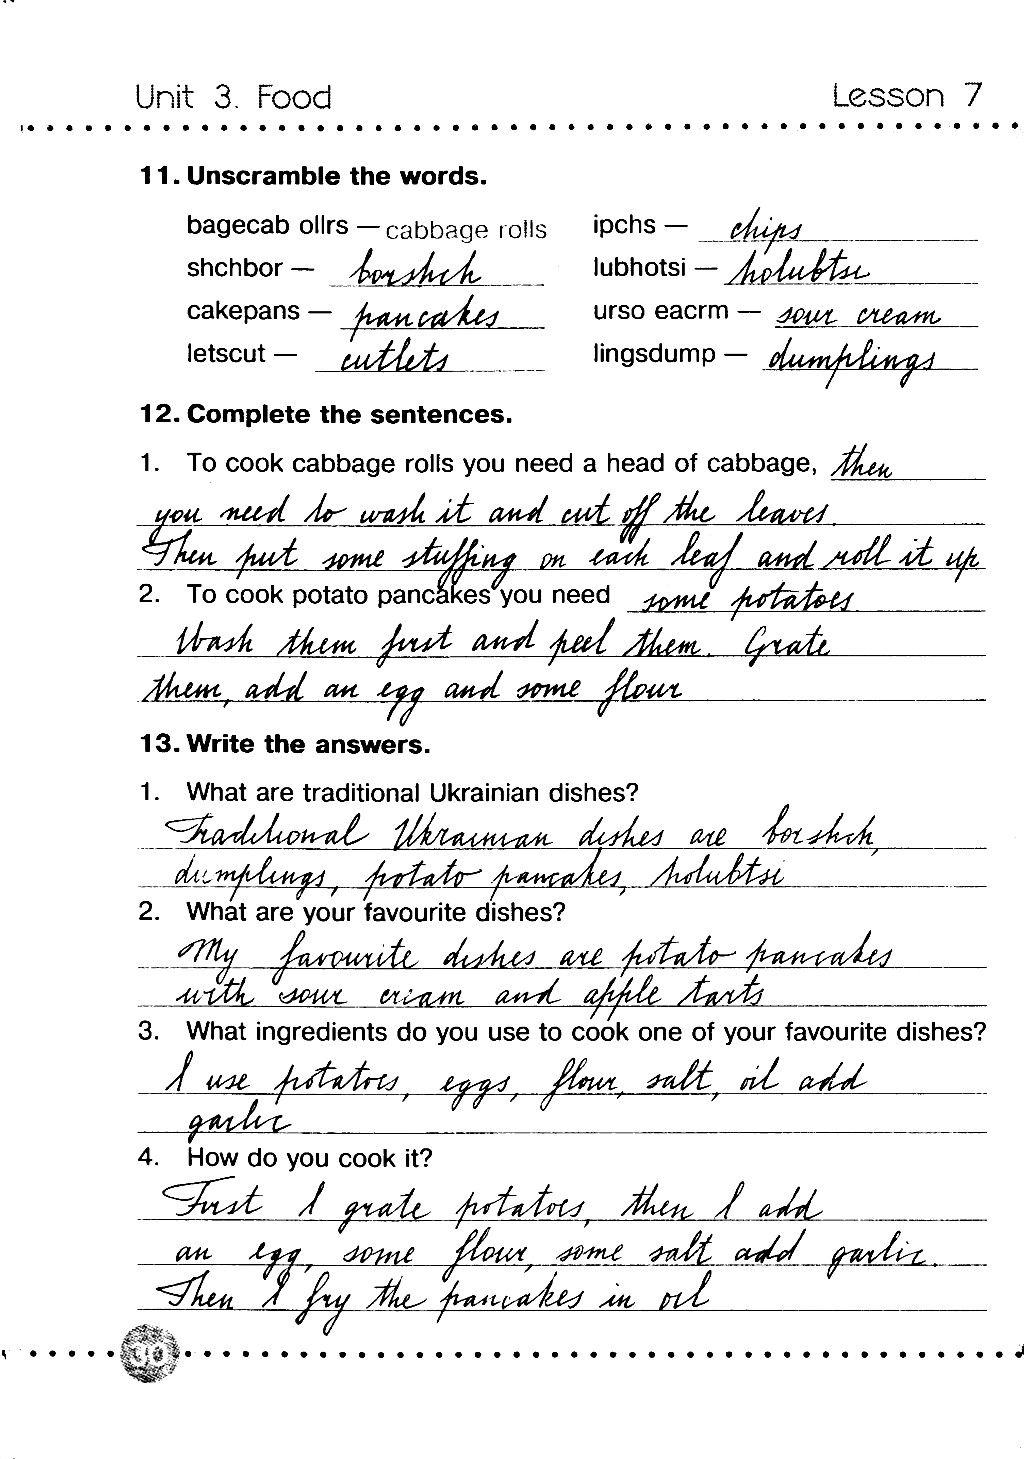 Unit 3. Food Lesson 7
11. Unscramble the words.
bagecab ollrs — cabbage rolls ipchs — chips
shchbor — borshch lubhotsi — holubtsi
cakepans — pancakes urso eacrm — sour cream
letscut — cutlets lingsdump — dumplings
12. Complete the sentences.
1. To cook cabbage rolls you need a head of cabbage, then
you need to wash it and cut off the leaves.
Then put some stuffing on each leaf and roll it up
2. To cook potato pancakes you need some potatoes.
Wash them first and peel them. Grate
them, add an egg and some flour
13. Write the answers.
1. What are traditional Ukrainian dishes?
Traditional Ukrainian dishes are borshch,
dumplings, potato pancakes, holubtsi
2. What are your favourite dishes?
My favourite dishes are potato pancakes
with sour cream and apple tarts
3. What ingredients do you use to cook one of your favourite dishes?
I use potatoes, eggs, flour, salt, oil add
garlic
4. How do you cook it?
First I grate potatoes, then I add
an egg, some flour, some salt add garlic.
Then I fry the pancakes in oil
30